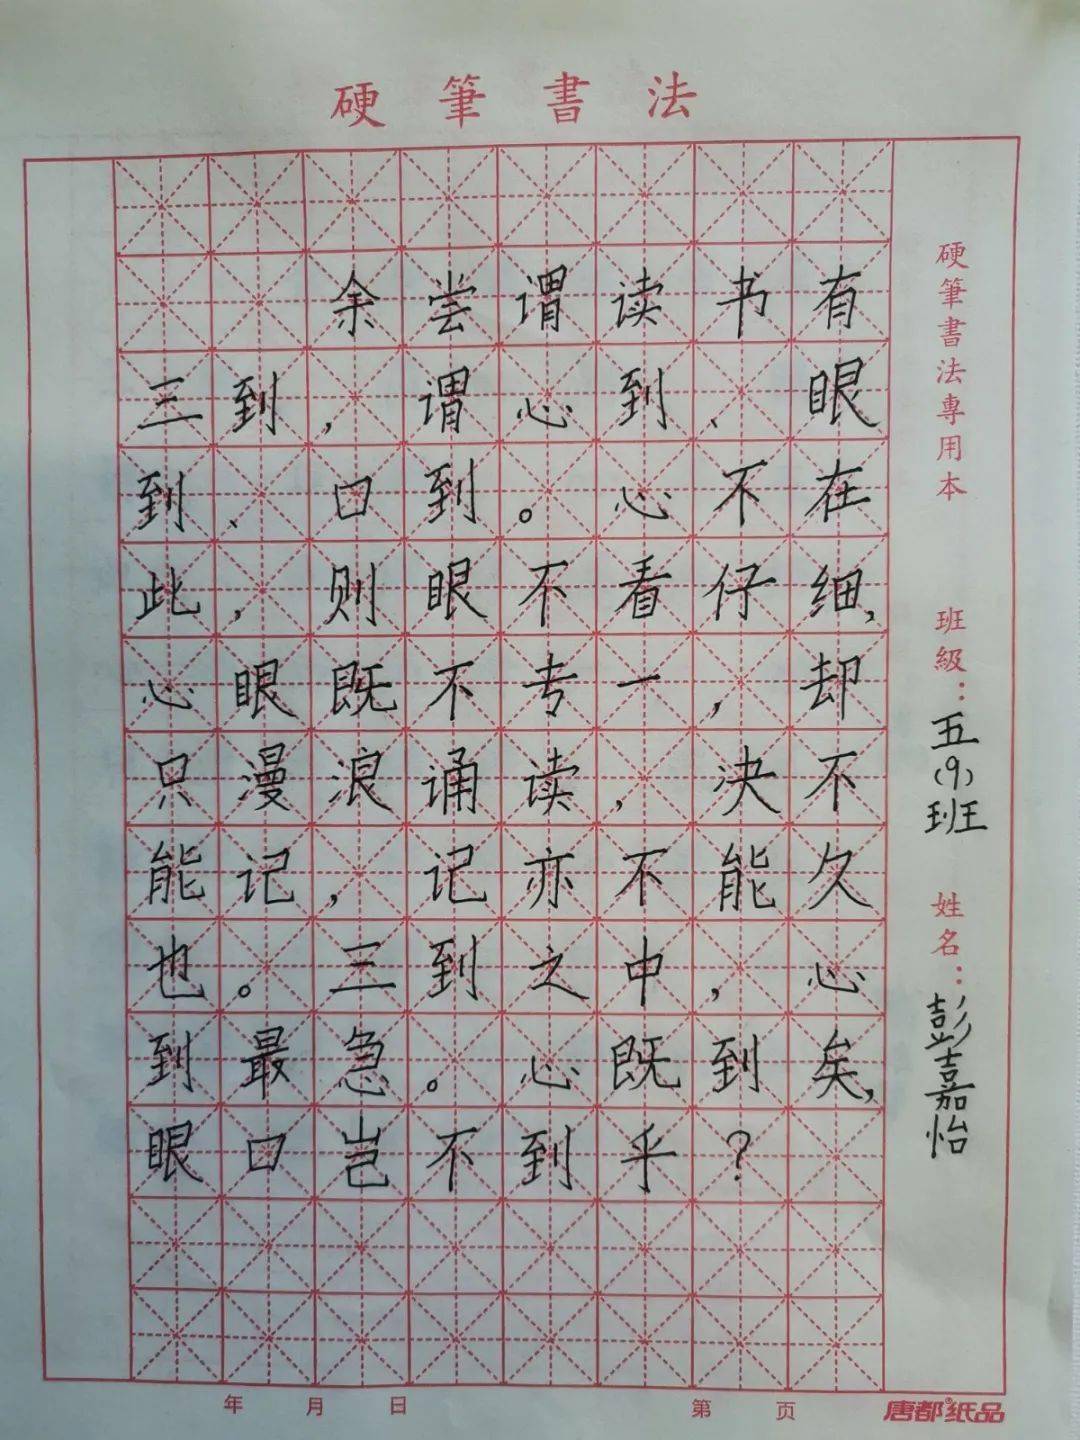 硬筆書法
余尝谓读书有
三到，谓心到、眼
到、口到。心不在
此，则眼不看仔细，
心眼既不专一，却
只漫浪诵读，决不
能记，记亦不能久
也。三到之中，心
到最急。心既到矣，
眼口岂不到乎？
硬筆書法專用本
班級：五(9)班
姓名：彭嘉怡
年 月 日
第 页
唐都®纸品